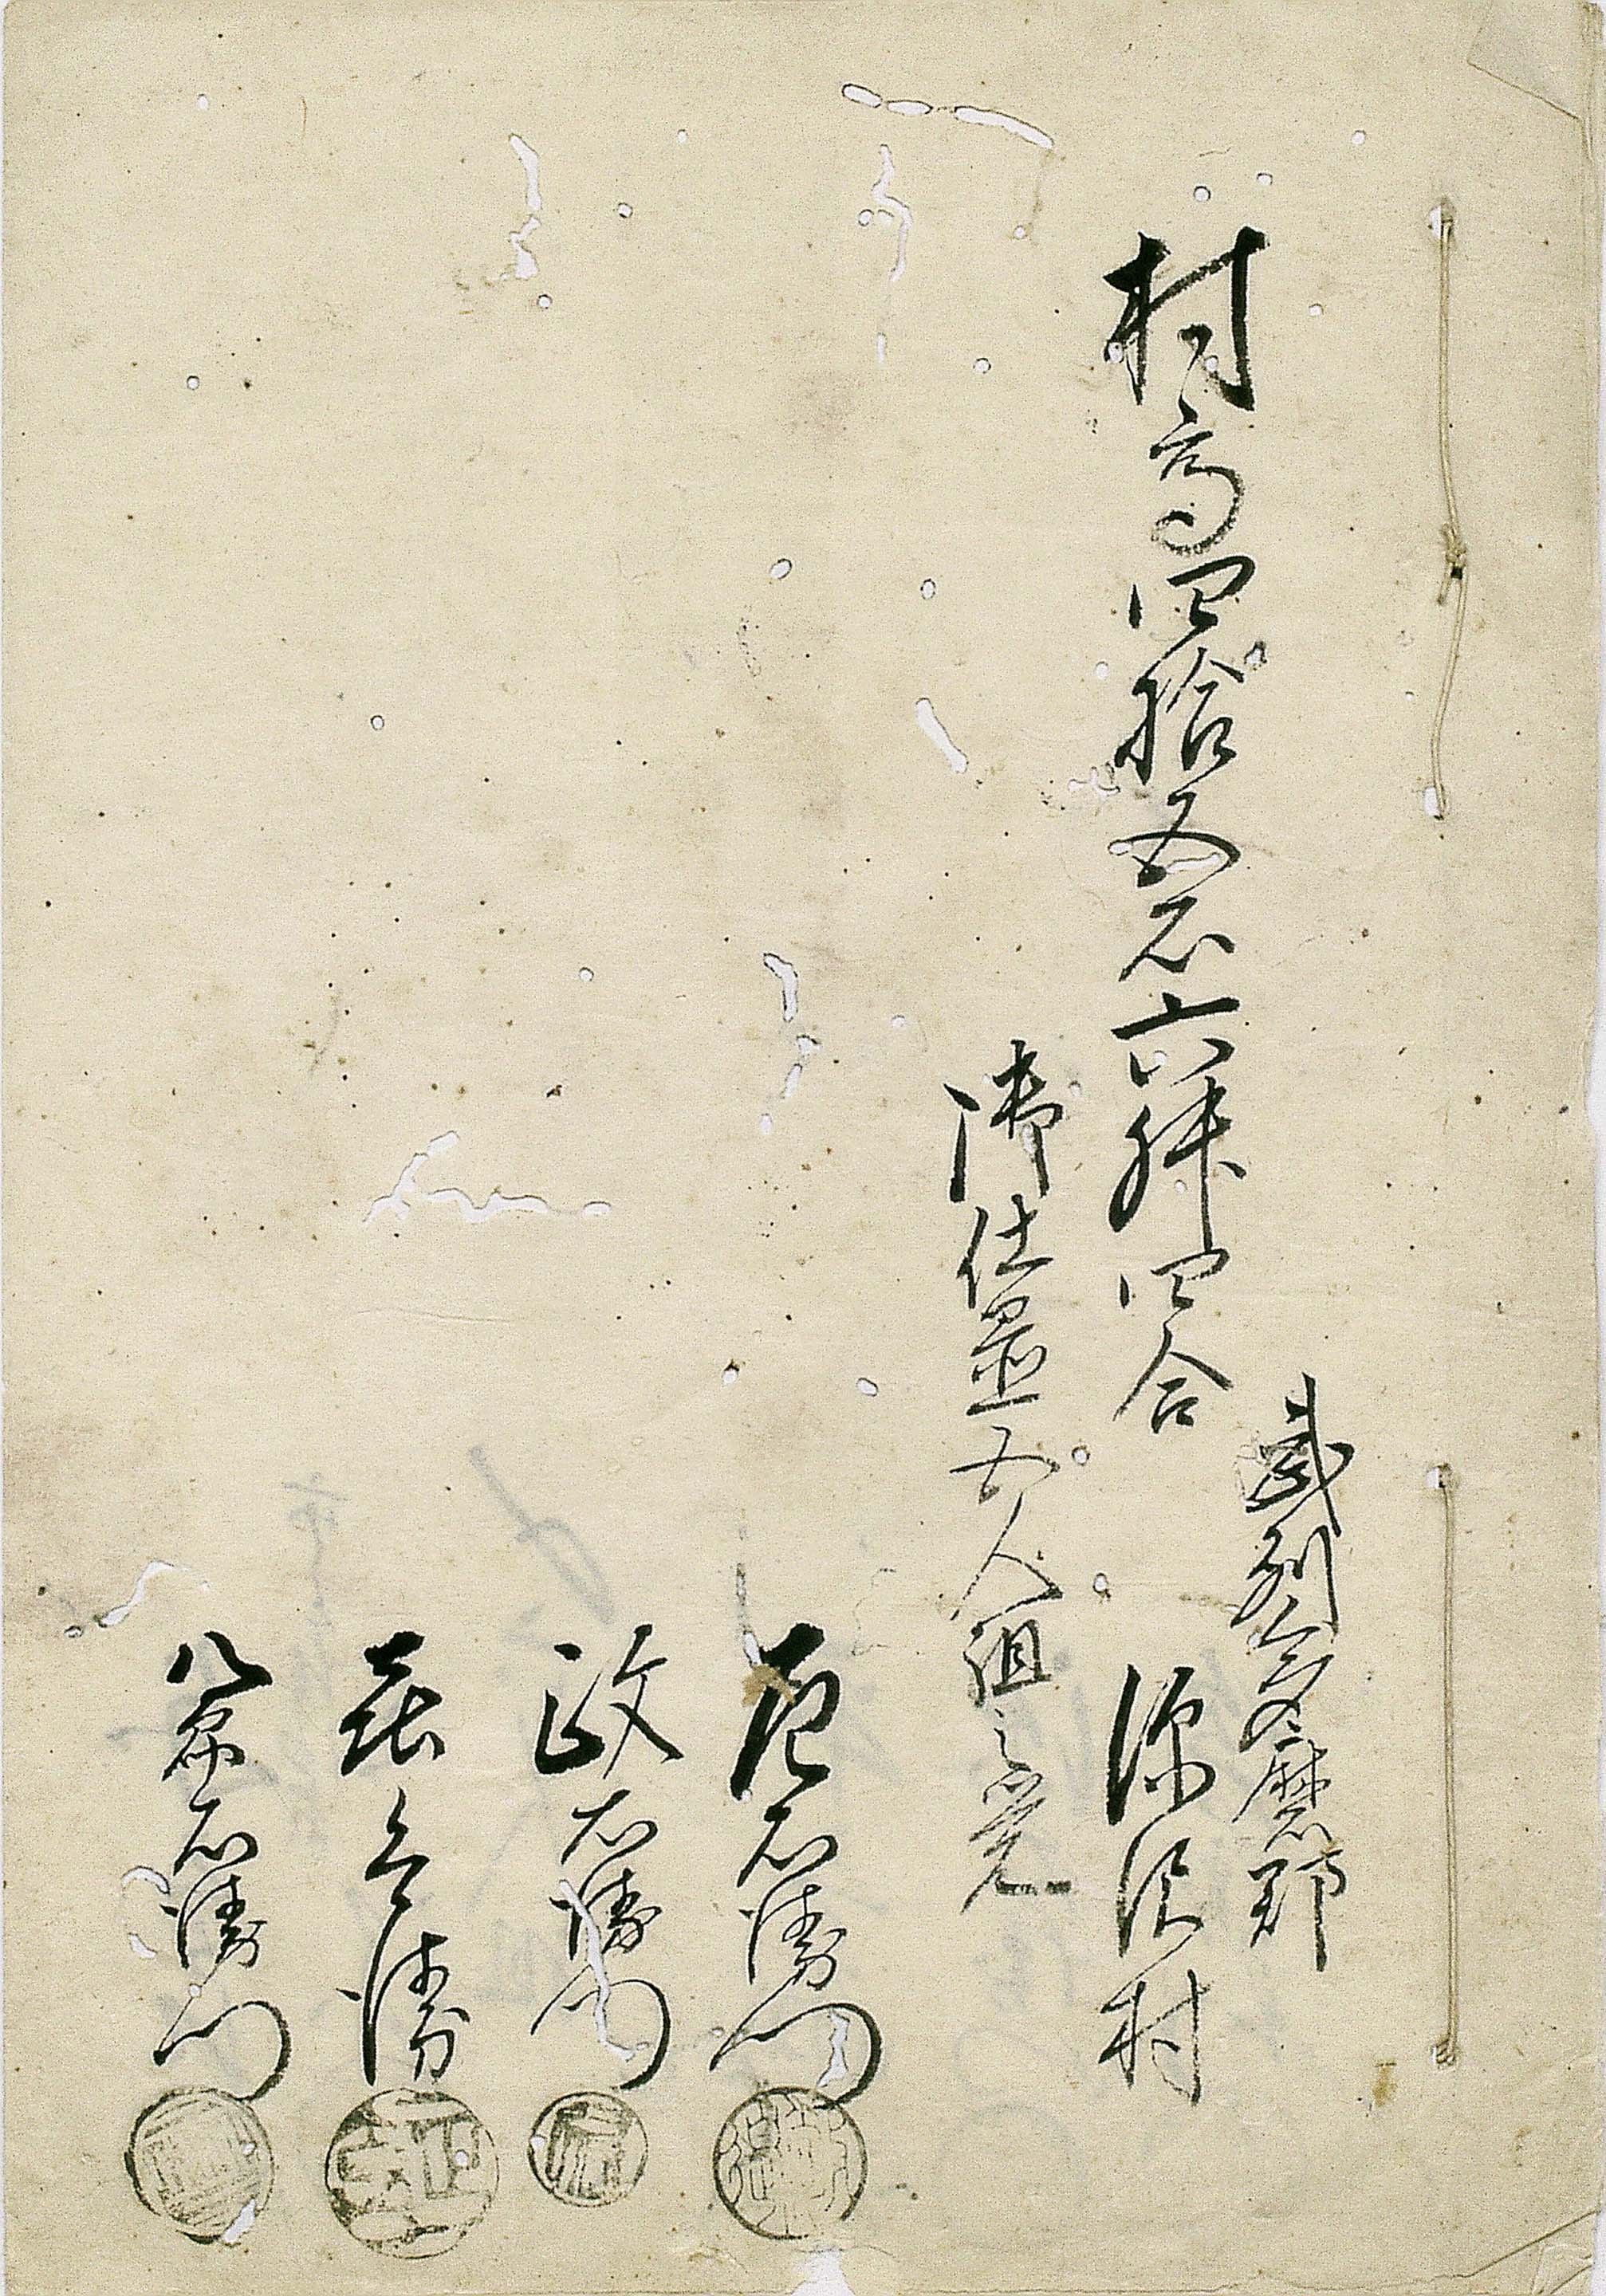 武州多麻郡
村高四拾五石六升四合
深沢村
御仕置五人組之覚
右衛門
政右衛門
兵衛
八郎右衛門